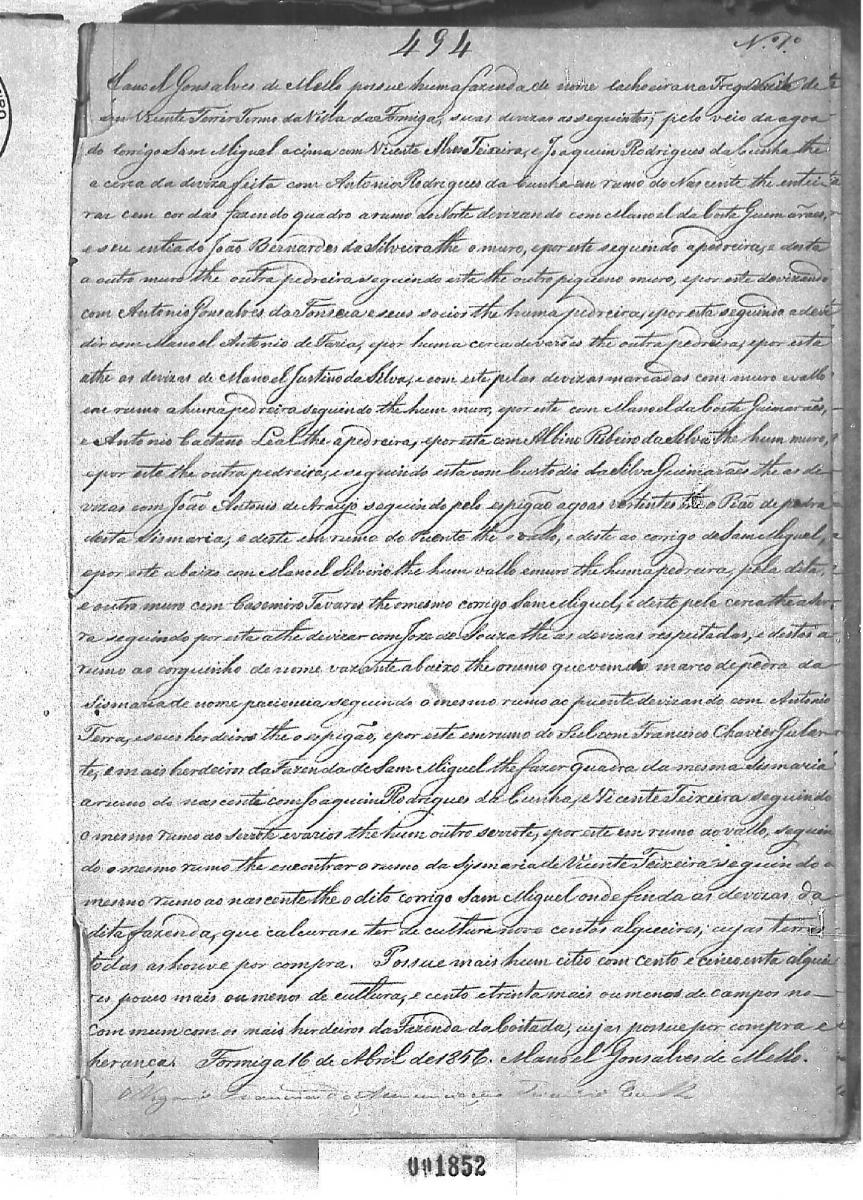 494
N.º 1.º
Manoel Gonsalves de Mello possue huma fazenda de nome cachoeira na Freg de
Sm Vicente Ferrer Termo da Villa da Formiga, suas devizas as seguintes; pelo veio da agoa
do corrigo Sam Miguel acima com Vicente Alves Teixeira, e Joaquim Rodrigues da Cunha the
a cerca da deviza feita com Antonio Rodrigues da Cunha em rumo do Nascente the entei
rar cem cordas fazendo quadro a rumo do Norte devizando com Manoel da Costa Guimarães,
e seu entiado João Bernardes da Silveira the o muro, e por este seguindo a pedreira, e desta
a outro muro the outra pedreira seguindo esta the outro piqueno muro, e por este devizando
com Antonio Gonsalves da Fonseca e seus socios the huma pedreira, e por esta seguindo a devi
dir com Manoel Antonio de Faria, e por huma cerca de varões the outra pedreira, e por esta
athe as devizas de Manoel Justino da Silva, e com este pelas devizas marcadas com muro e vallo
em rumo a huma pedreira seguindo the hum muro, e por este com Manoel da Costa Guimarães,
e Antonio Caetano Leal the a pedreira, e por esta com Albino Ribeiro da Silva the hum muro,
e por este the outra pedreira, e seguindo esta com Custodio da Silva Guimarães the as de
vizas com João Antonio de Araujo seguindo pelo espigão agoas vertentes the o Pião de pedra
desta Sismaria, e deste em rumo do Puente the o vallo, e deste ao corrigo de Sam Miguel,
e por este abaixo com Manoel Silverio the hum vallo e muro the huma pedreira, pela dita,
e outro muro com Casemiro Tavares the o mesmo corrigo Sam Miguel, e deste pela cerca the a ser
ra seguindo por esta athe devizar com Joze de Souza the as devizas respeitadas, e destas a
rumo ao corguinho de nome vazante abaixo the o rumo que vem do marco de pedra da
Sismaria de nome paciencia seguindo o mesmo rumo ao puente devizando com Antonio
Terra, e seus herdeiros the o espigão, e por este em rumo do Sul com Francisco Chavier Gular
te, e mais herdeiros da Fazenda de Sam Miguel the fazer quadra da mesma Sismaria
a rumo do nascente com Joaquim Rodrigues da Cunha, e Vicente Teixeira seguindo
o mesmo rumo ao serrote e varios the hum outro serrote, e por este em rumo ao vallo, seguin
do o mesmo rumo the encontrar o rumo da Sysmaria de Vicente Teixeira seguindo o
mesmo rumo ao nascente the o dito corrigo Sam Miguel onde finda as devizas da
dita fazenda, que calcura se ter de cultura nove centos alqueires; cujas terras
todas as houve por compra. Possue mais hum citio com cento e cincoenta alquei
res pouco mais ou menos de cultura, e cento e trinta mais ou menos de campos no
com mum com os mais herdeiros da Fazenda da Coitada, cujas possue por compra e
herança. Formiga 16 de Abril de 1856. Manoel Gonsalves de Mello.
001852